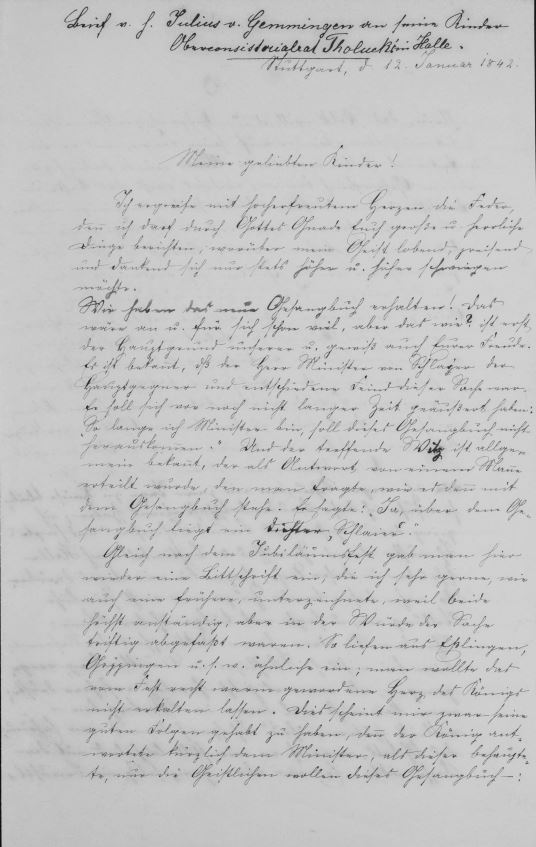 Brief v. H. Julius v. Gemmingen an seine Kinder
Oberconsistorialrat Tholucks in Halle.
Stuttgart, d. 12. Januar 1842.
Meine geliebten Kinder!
Ich ergreife mit hocherfreutem Herzen die Feder,
denn ich darf durch Gottes Gnade Euch große u. herrliche
Dinge berichten, worüber mein Geist lobend, preisend
und dankend sich nur stets höher u. höher schwingen
möchte.
Wir haben das neue Gesangbuch erhalten! Das
wäre an u. für sich schon viel, aber das wie? ist erst
der Hauptgrund unserer u. gewiß auch Eurer Freude.
Es ist bekannt, dß der Herr Minister von Schlayer der
Hauptgegner und entschiedene Feind dieser Sache war.
Er soll sich vor noch nicht langer Zeit geäußert haben:
"So lange ich Minister bin, soll dieses Gesangbuch nicht
herauskommen." Und der treffende Witz ist allge-
mein bekannt, der als Antwort von einem Manne
erteilt wurde, den man fragte, wie es denn mit
dem Gesangbuch stehe. Er sagte: "Ja, über dem Ge-
sangbuch liegt ein dichter Schlaier."
Gleich nach dem Jubiläumsfest gab man hier
wieder eine Bittschrift ein, die ich sehr gerne, wie
auch eine frühere, unterzeichnete, weil beide
höchst anständig, aber in der Würde der Sache
triftig abgefaßt waren. So liefen aus Eßlingen,
Göppingen u.s.w. ähnliche ein; man wollte das
vom Fest recht warm gewordene Herz des Königs
nicht erkalten lassen. Dies scheint mir zwar seine
guten Folgen gehabt zu haben, denn der König ant-
wortete kürzlich dem Minister, als dieser behaupte-
te, nur die Geistlichen wollen dieses Gesangbuch -: